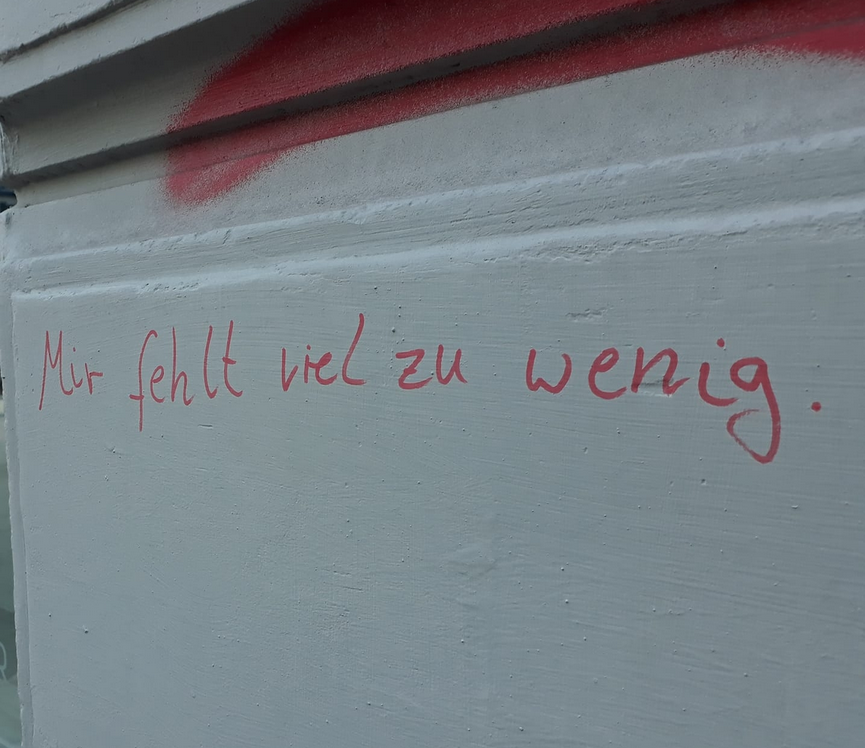 Mir fehlt viel zu wenig.